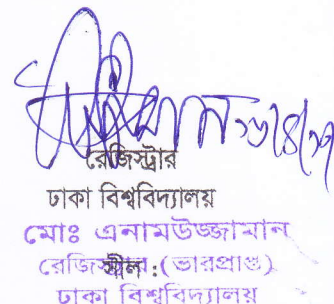 রেজিস্ট্রার
ঢাকা বিশ্ববিদ্যালয়
মোঃ এনামউজ্জামান
রেজিস্ট্রার (ভারপ্রাপ্ত)
সীল:
ঢাকা বিশ্ববিদ্যালয়